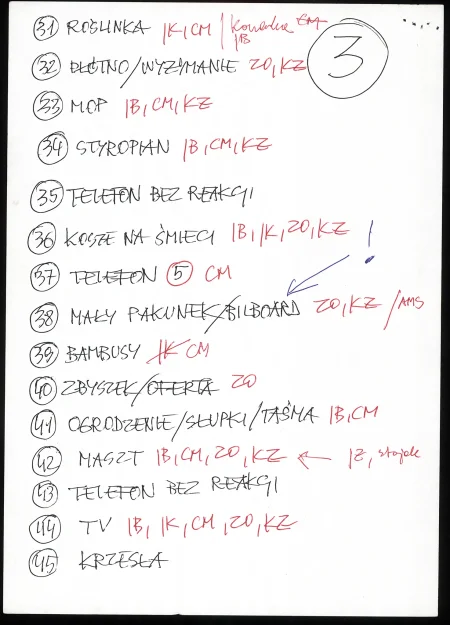 3
31 ROŚLINKA IK, CM / Komedia CM
IB
32 PŁÓTNO/WYŻYMANIE ZO, KZ
33 MOP IB, CM, KZ
34 STYROPIAN IB, CM, KZ
35 TELEFON BEZ REAKCJI
36 KOSZE NA ŚMIECI IB, IK, ZO, KZ !
37 TELEFON 5 CM
38 MAŁY PAKUNEK/BILBOARD ZO, KZ / AMS
39 BAMBUSY IK CM
40 ZBYSZEK/OFERTA ZO
41 OGRODZENIE/SŁUPKI/TAŚMA IB, CM
42 MASZT IB, CM, ZO, KZ ← IZ, stojak
43 TELEFON BEZ REAKCJI
44 TV IB, IK, CM, ZO, KZ
45 KRZESŁA